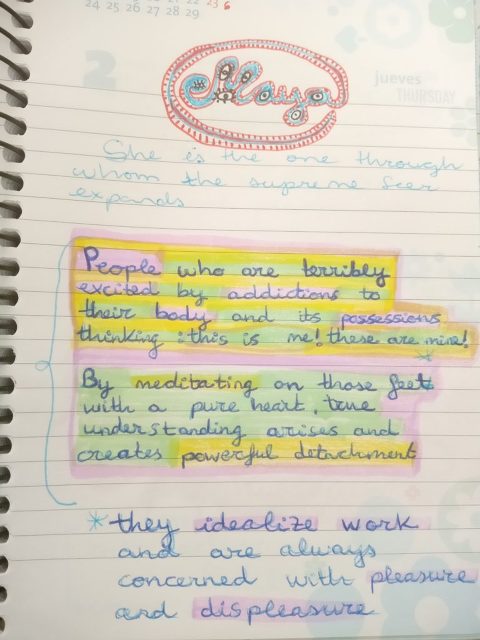 24 25 26 27 28 29
2
jueves
THURSDAY
Maya
She is the one through
whom the supreme Seer
expands
People who are terribly
excited by addictions to
their body and its possessions
thinking : this is me! these are mine!
*
By meditating on those feet
with a pure heart, true
understanding arises and
creates powerful detachment
* they idealize work
and are always
concerned with pleasure
and displeasure